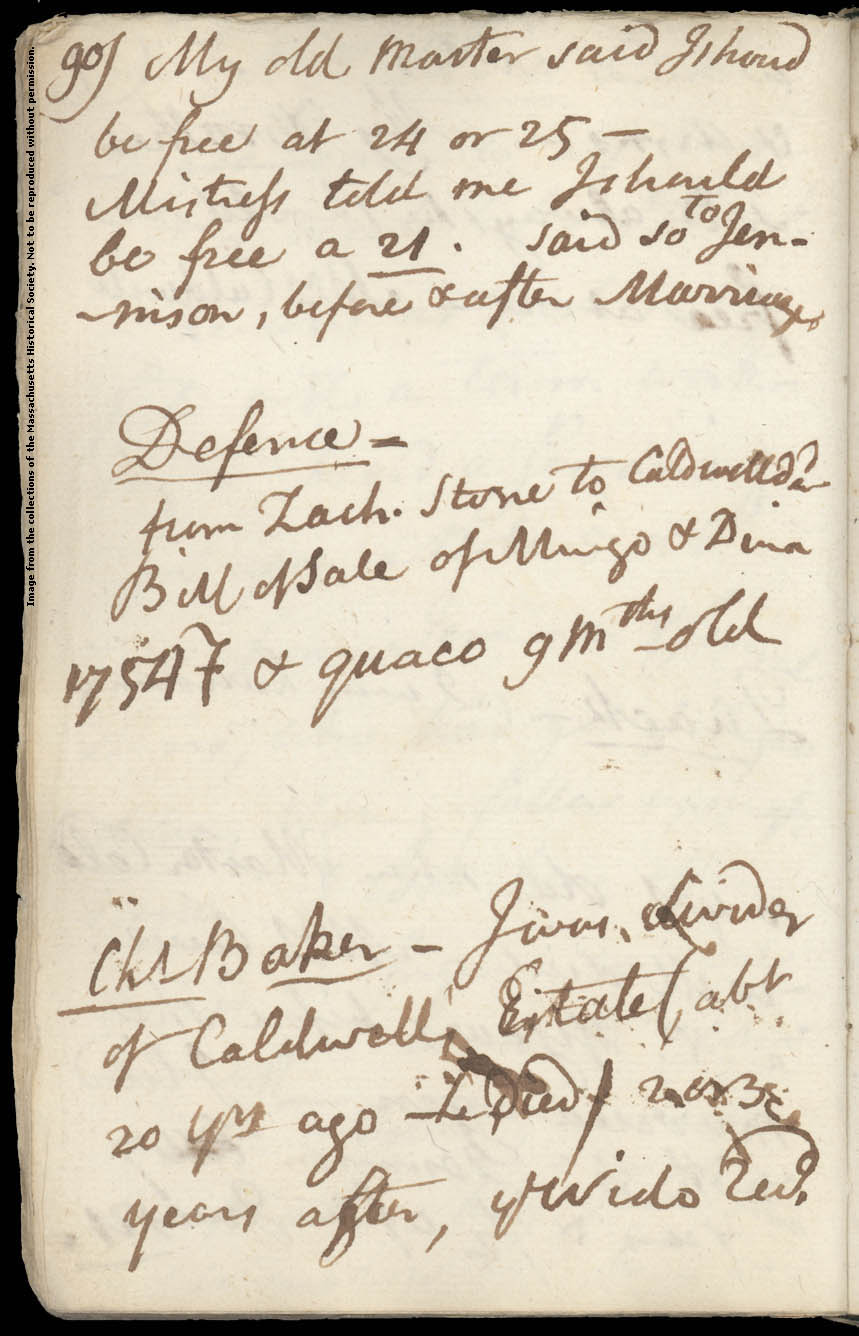 Image from the collections of the Massachusetts Historical Society. Not to be reproduced without permission.
90) My old Master said I shoud
be free at 24 or 25 —
Mistress told me I should
be free a 21. said so to Jen-
-nison, before & after Marriage
Defence —
from Zach. Stone to Caldwell
Bill of Sale of Mingo & Dina
17547 & quaco 9 mths old
Baker — I was divider
of Caldwell's Estate (abt
20 yrs ago He Died) 2 or 3
years after, ye Wido